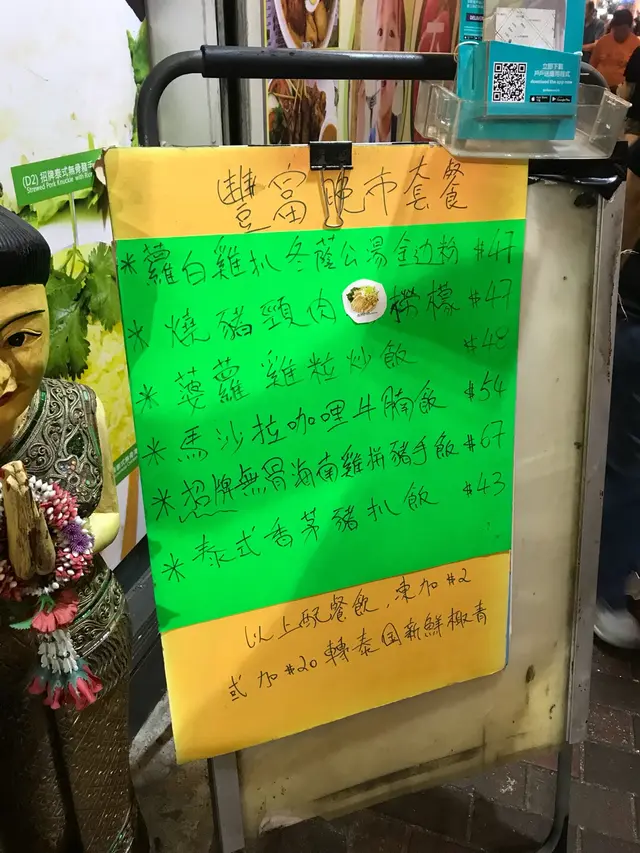 立即下載
戶戶送應用程式
download the app now
(D2) 招牌泰式無骨豬手
Stewed Pork Knuckle with Rice
豐富晚市套餐
*蘿白雞扒冬蔭公湯金边粉 $47
*燒豬頸肉 檸檬 $47
*菠蘿雞粒炒飯 $48
*馬沙拉咖哩牛腩飯 $54
*招牌無骨海南雞拼豬手飯 $67
*泰式香茅豬扒飯 $43
以上配餐飲,凍加 $2
或加 $20 轉泰国新鮮椰青